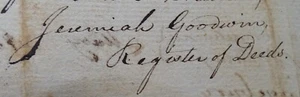 Jeremiah Goodwin,
Register of Deeds.